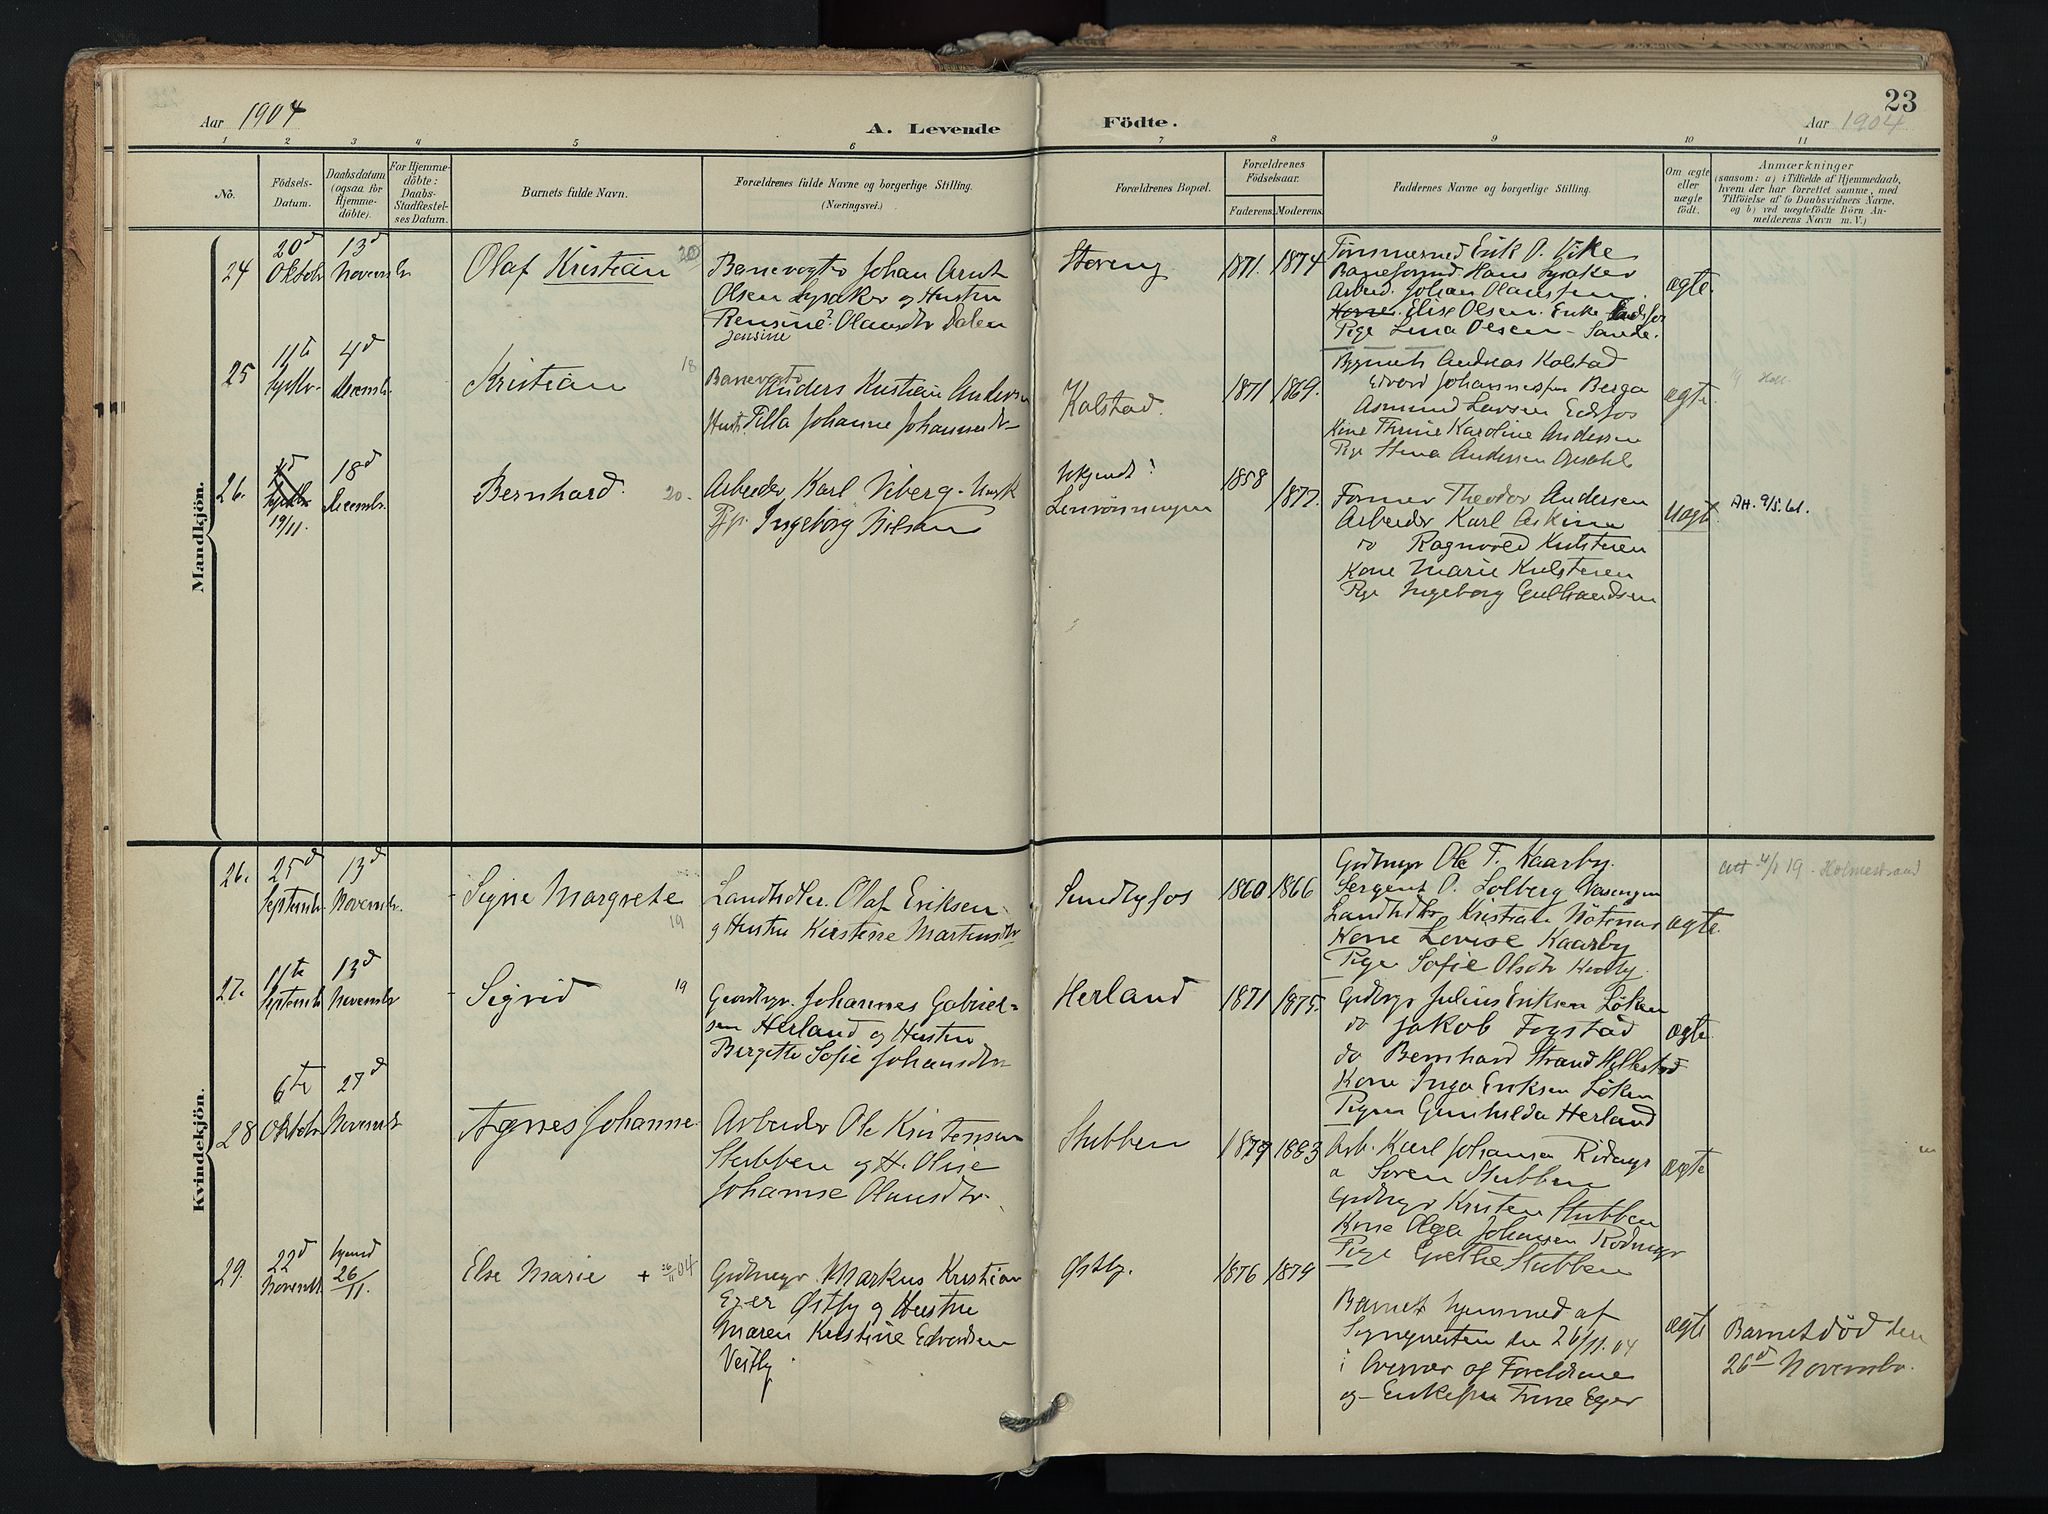 23
Aar 1904
A. Levende
Födte.
Aar 1904
1 2 3 4 5 6 7 8 9 10 11
No.
Födsels-
Datum.
Daabsdatum
(ogsaa for
Hjemme-
döbte).
For Hjemme-
döbte:
Daabs-
Stadfæstel-
ses Datum.
Barnets fulde Navn.
Forældrenes fulde Navne og borgerlige Stilling.
(Næringsvei.)
Forældrenes Bopæl.
Forældrenes
Födselsaar.
Faderens.
Moderens.
Faddernes Navne og borgerlige Stilling.
Om ægte
eller
uægte
födt.
Anmærkninger
(saasom: a) i Tilfælde af Hjemmedaab,
hvem der har forrettet samme, med
Tilföielse af to Daabsvidners Navne,
og b) ved uægtefödte Börn An-
melderens Navn m. V.)
Mandkjön.
24
20d
Oktobr
13d
Novembr
Olaf Kristian
20
Banevogter Johan Arnt
Olsen Lysaker og Hustru
Rensine? Olausdtr Dalen
Jensine
Storeng
1871.
1874
Erik O. Vike
Hans Lysaker
Arbeid. Johan Olaussen
Kone Elise Olsen. Enke
Pige Lina Olsen - Sande.
ægte.
25
11te
4d
Decembr.
Kristian
18
Banevogter
Anders Kristian Andersen
Hustr. Johanne
Kolstad.
1871
1869.
Andreas Kolstad
Edvard Johannessen Berga
Asmund Larsen
Kone Thrine Karoline Andersen
Pige Stina Andersen
ægte.
26.
19/11.
18d
Decembr.
Bernhard.
20.
Arbeider Karl Viberg
Ingeborg Nilsen
Ukjendt!
1858
1872.
Former Theodor Andersen
Arbeider Karl Askim
do Ragnvald Kulsteren
Kone Marie Kulsteren
Pige Ingeborg Gulbrandsen
Uægt.
AH. 9/5.61.
Kvindekjön.
26.
25d
Septembr
13d
Novembr.
Signe Margrete
19
Landhdler. Olaf Eriksen
og Hustru Kirstine
Sundbyfos
1860
1866
Grdbrugr Ole T. Kaarby.
Sergent O. Solberg
Landhdler Kristian
Kone Lovise Kaarby
Pige Sofie Olsdtr
ægte.
19. Holmestrand
27.
11te
Septembr
13d
Novembr
Sigrid
19
Gaardbgr. Johannes Gabriel-
sen Herland og Hustru
Birgitte Sofie Johansdtr
Herland
1871
1875.
Grdbrgr Julius Eriksen Løken
do Jakob Fogstad
do Bernhard Strand Hillestad
Kone Inga Eriksen Løken
Pigen Gunhilda Herland
ægte.
28
6te
Oktobr
27d
Novembr
Agnes Johanne
Arbeider Ole Kristensen
Stubben og H. Olise
Johanne Olausdtr.
Stubben
1879
1883
Arb. Karl Johansen
Søren Stubben
Grdbrgr Kristen Stubben
Kone Olga Johansen
Pige Grethe Stubben
ægte
29.
22d
Novembr.
hjemd
26/11.
Else Marie + 26/11 04
Grdbrugr. Markus Kristian
Eger Østby og Hustru
Maren Kirstine Edvardsen
Vestby.
Østby.
1876
1879
Barnet hjemmed af
den 26/11.04
i Overvær og Foreldrene
og Enkefru Trine Eger
ægte
Barnet död den
26d Novembr.